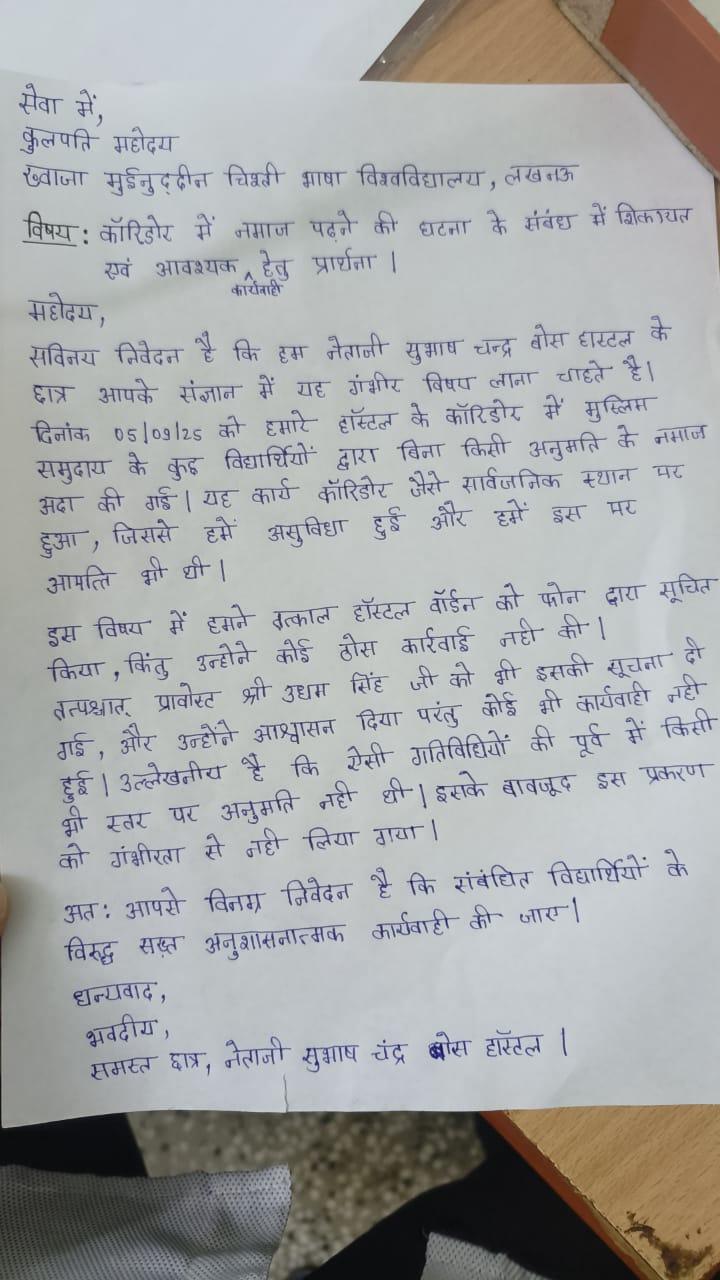 सेवा में,
कुलपति महोदय
ख्वाजा मुईनुद्दीन चिश्ती भाषा विश्वविद्यालय, लखनऊ
विषय : कॉरिडोर में नमाज पढ़ने की घटना के संबंध में शिकायत
एवं आवश्यक कार्यवाही हेतु प्रार्थना ।
महोदय,
सविनय निवेदन है कि हम नेताजी सुभाष चन्द्र बोस हास्टल के
छात्र आपके संज्ञान में यह गंभीर विषय लाना चाहते है।
दिनांक 05/09/25 को हमारे हॉस्टल के कॉरिडोर में मुस्लिम
समुदाय के कुछ विद्यार्थियों द्वारा बिना किसी अनुमति के नमाज
अदा की गई। यह कार्य कॉरिडोर जैसे सार्वजनिक स्थान पर
हुआ, जिससे हमें असुविधा हुई और हमें इस पर
आपत्ति भी थी।
इस विषय में हमने तत्काल हॉस्टल वॉर्डन को फोन द्वारा सूचित
किया, किंतु उन्होने कोई ठोस कार्रवाई नही की।
तत्पश्चात् प्रावोस्ट श्री उधम सिंह जी को भी इसकी सूचना दी
गई, और उन्होने आश्वासन दिया परंतु कोई भी कार्यवाही नही
हुई। उल्लेखनीय है कि ऐसी गतिविधियों की पूर्व में किसी
भी स्तर पर अनुमति नही थी। इसके बावजूद इस प्रकरण
को गंभीरता से नही लिया गया।
अत: आपसे विनम्र निवेदन है कि संबंधित विद्यार्थियों के
विरुद्ध सख़्त अनुशासनात्मक कार्यवाही की जाए।
धन्यवाद,
भवदीय,
समस्त छात्र, नेताजी सुभाष चंद्र बोस हॉस्टल ।